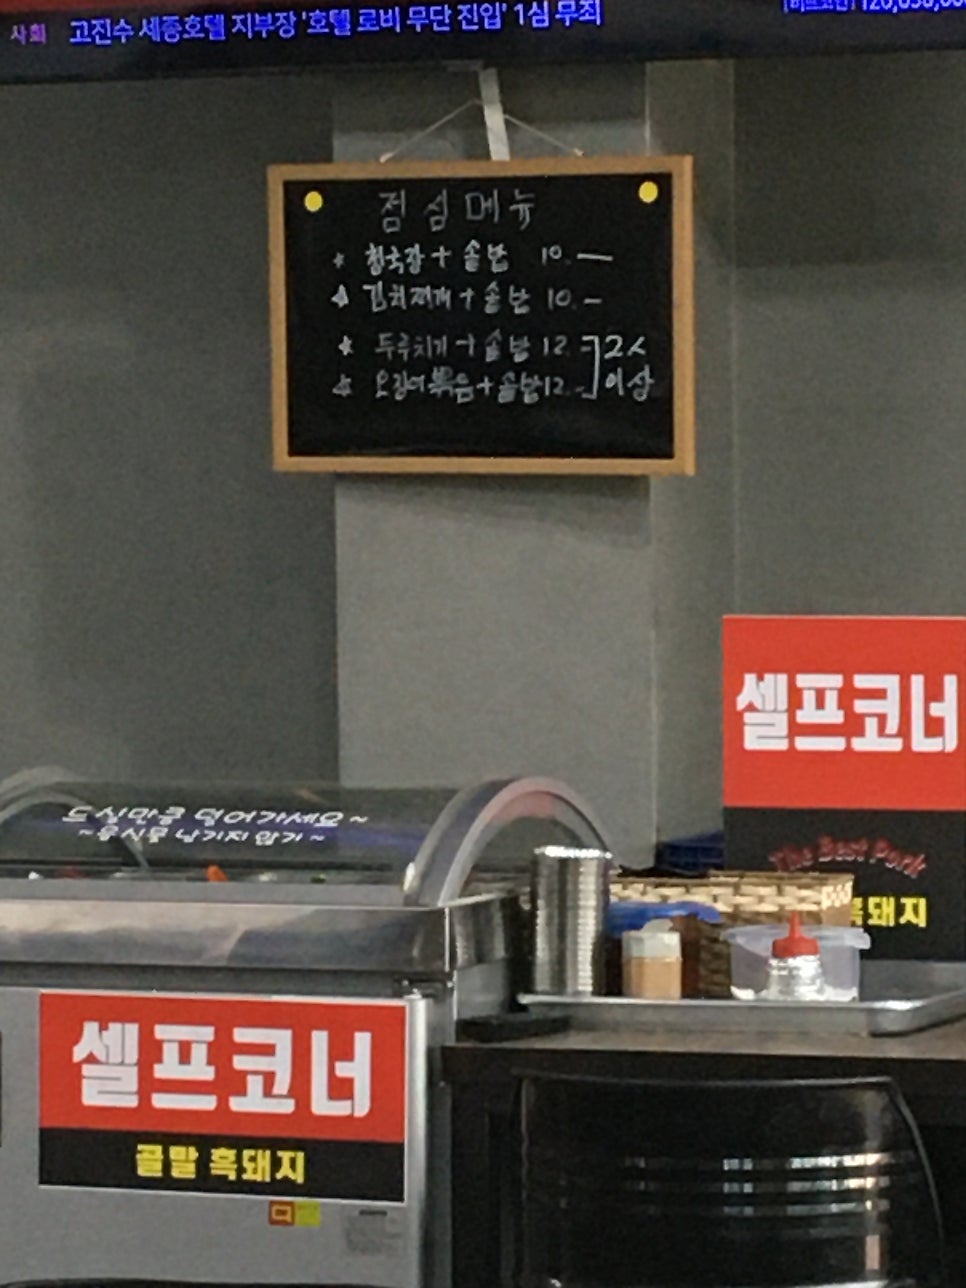 사회 고진수 세종호텔 지부장 '호텔 로비 무단 진입' 1심 무죄
점심메뉴
* 청국장 + 솥밥 10.—
* 김치찌개 + 솥밥 10.—
* 두루치기 + 솥밥 12.-
* 오징어볶음 + 솥밥 12.-
2人 이상
셀프코너
The Best Pork
흑돼지
드실만큼 덜어가세요~
~음식물 남기지 않기~
셀프코너
골말 흑돼지